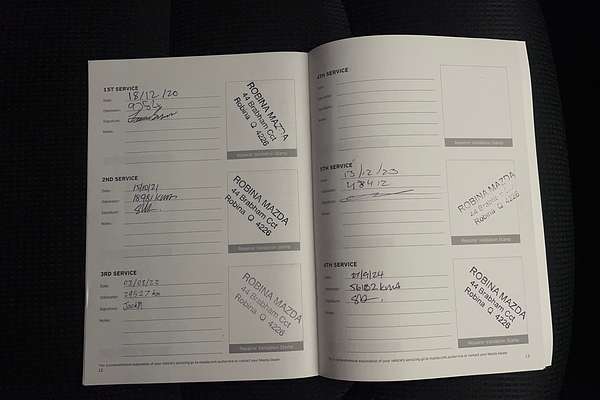 1ST SERVICE
Date: 18/12/20
Odometer:
Signature:
Notes:
ROBINA MAZDA
44 Brabham Cct
Robina Q 4226
Repairer Validation Stamp
2ND SERVICE
Date:
Odometer: 18981 kms
Signature:
Notes:
ROBINA MAZDA
44 Brabham Cct
Robina Q 4226
Repairer Validation Stamp
3RD SERVICE
Date:
Odometer:
Signature: Jack
Notes:
ROBINA MAZDA
44 Brabham Cct
Robina Q 4226
Repairer Validation Stamp
12
4TH SERVICE
Date:
Odometer:
Signature:
Notes:
Repairer Validation Stamp
5TH SERVICE
Date: 13/12/23
Odometer: 48412
Notes:
ROBINA MAZDA
44 Brabham Cct
Robina Q 4226
Repairer Validation Stamp
6TH SERVICE
Date:
Odometer: 56182 kms
Signature:
Notes:
ROBINA MAZDA
44 Brabham Cct
Robina Q 4226
Repairer Validation Stamp
13